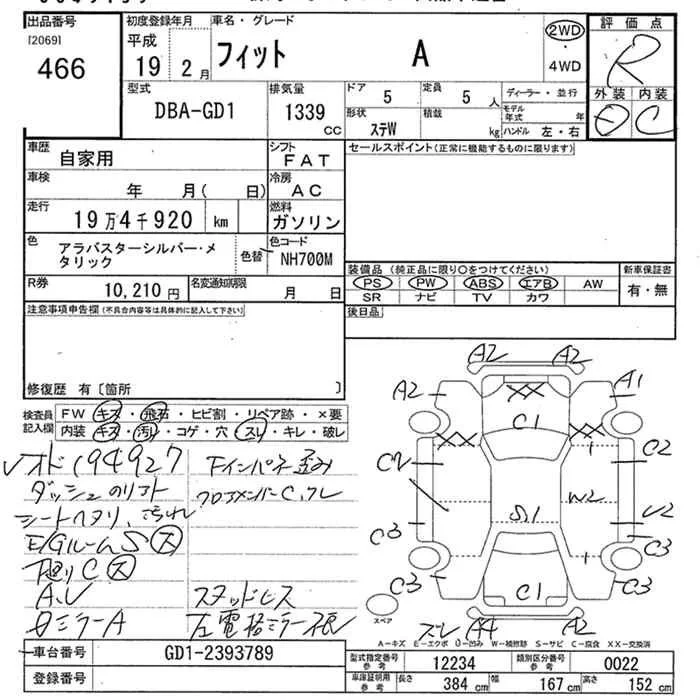 出品番号
[2069]
466
初度登録年月
平成
19 2月
車名・グレード
フィット A
2WD
・
4WD
評価点
R
外装 内装
D C
型式
DBA-GD1
排気量
1339
CC
ドア
5
定員
5 人
形状
ステW
積載
kg
ディーラー・並行
モデル
年式 年
ハンドル 左・右
車歴
自家用
シフト
FAT
セールスポイント(正常に機能するものに限ります)
車検
年 月( 日)
冷房
AC
走行
19万4千920 km
燃料
ガソリン
色
アラバスターシルバー・メ
タリック
色替
色コード
NH700M
R券
10,210 円
名変通知期限
月 日
装備品 (純正品に限り○をつけてください)
PS PW ABS エアB AW
SR ナビ TV カワ
新車保証書
有・無
後日品
注意事項申告欄(不具合内容等は具体的に記入して下さい)
修復歴 有〔箇所 〕
検査員
記入欄
FW キズ・飛石・ヒビ割・リペア跡・×要
内装 キズ・汚れ・コゲ・穴・スレ・キレ・破レ
オド194927
ダッシュのリフト
シートヘタリ、汚れ
E/GルームS ス
下廻りC ス
A.V
Fインパネ歪み
フロアメンバーC,クレ
スタッドレス
左電格ミラー不良
A2 A2
A2 A1
XX
C1
XX XX
C2 C2
W2
S1 U2
C3 C3
C3 C3
C1
スペア
ズレ A4 A2
A－キズ E－エクボ U－凹み W－補修跡 S－サビ C－腐食 XX－交換済
車台番号
GD1-2393789
登録番号
型式指定番号
参考
12234
類別区分番号
参考
0022
車庫証明用
参考
長さ
384 cm
幅
167 cm
高さ
152 cm